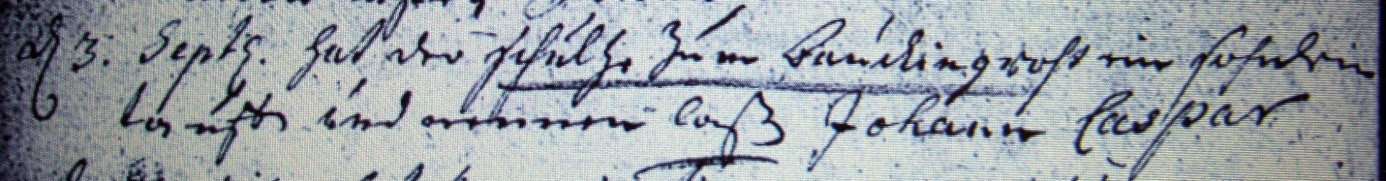 d 3. Septb. hat der Schultze zum Bauckingroht ein söhnlein
tauffen und nennen laß Johann Caspar